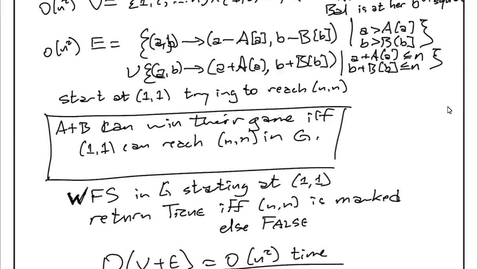 O(n²) V = {1, ..., n} × {1, ..., n}
Bal is at her b-th square
O(n²) E = {(a,b) → (a-A[a], b-B[b]) | a>A[a] b>B[b]}
∪ {(a,b) → (a+A[a], b+B[b]) | a+A[a]≤n b+B[b]≤n}
start at (1,1) trying to reach (n,n)
A+B can win their game iff
(1,1) can reach (n,n) in G.
WFS in G starting at (1,1)
return TRUE iff (n,n) is marked
else FALSE
O(V+E) = O(n²) time